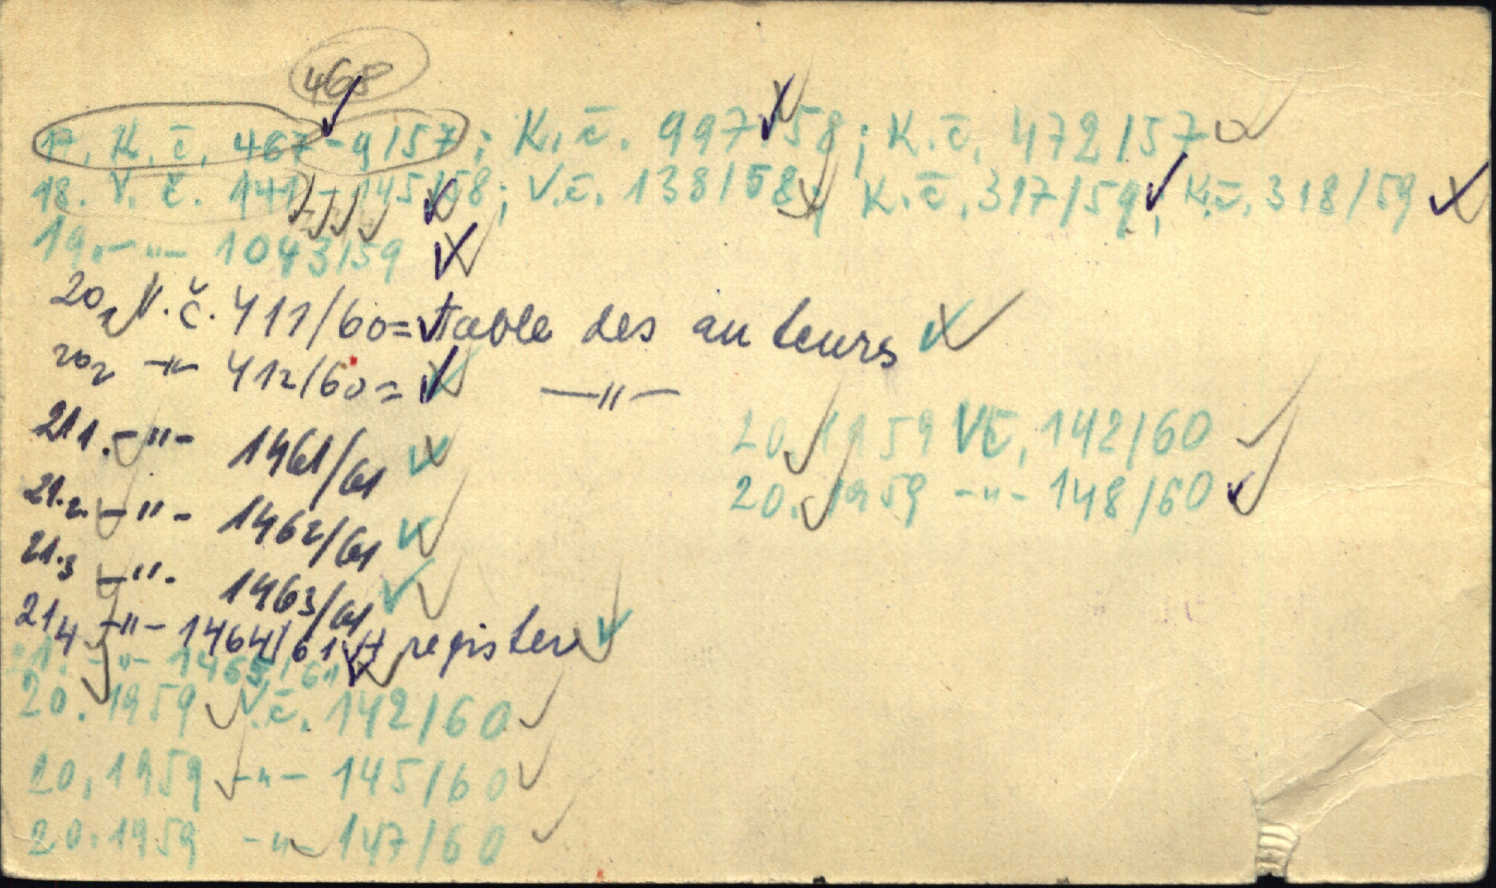 468
17. K.č. 467-9/57; K.č. 997/58; K.č. 472/57
18. V.č. 141-145/58; V.č. 138/58; K.č. 317/59; K.č. 318/59
19. -"- 1043/59
20, V.č. 411/60 = table des auteurs
20₂ -"- 412/60 = -"-
21.1. -"- 1461/61
21.2 -"- 1462/61
21.3 -"- 1463/61
21.4 -"- 1464/61 register
21. -"- 1465/61
20. 1959 V.č. 142/60
20, 1959 -"- 145/60
20. 1959 -"- 147/60
20. 1959 Vč, 142/60
20. 1959 -"- 148/60